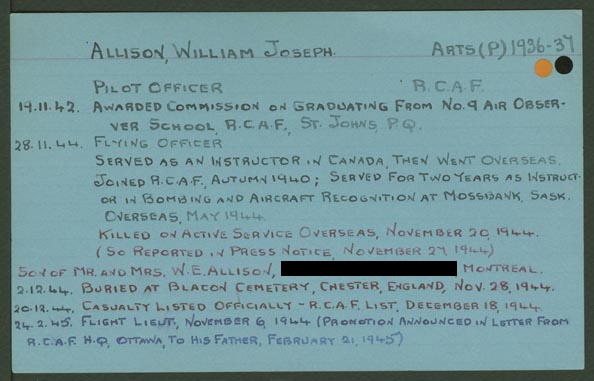 ALLISON, WILLIAM JOSEPH. ARTS (P) 1936-37
PILOT OFFICER R.C.A.F.
19.11.42. AWARDED COMMISSION ON GRADUATING FROM NO.9 AIR OBSER-
VER SCHOOL, R.C.A.F., ST. JOHNS, P.Q.
28.11.44. FLYING OFFICER
SERVED AS AN INSTRUCTOR IN CANADA, THEN WENT OVERSEAS.
JOINED R.C.A.F., AUTUMN 1940; SERVED FOR TWO YEARS AS INSTRUCT-
OR IN BOMBING AND AIRCRAFT RECOGNITION AT MOSSBANK, SASK.
OVERSEAS, MAY 1944.
KILLED ON ACTIVE SERVICE OVERSEAS, NOVEMBER 20, 1944.
(SO REPORTED IN PRESS NOTICE, NOVEMBER 27, 1944)
SON OF MR. AND MRS. W.E. ALLISON, MONTREAL.
2.12.44. BURIED AT BLACON CEMETERY, CHESTER, ENGLAND, NOV. 28, 1944.
20.12.44. CASUALTY LISTED OFFICIALLY - R.C.A.F. LIST, DECEMBER 18, 1944.
24.2.45. FLIGHT LIEUT., NOVEMBER 6, 1944 (PROMOTION ANNOUNCED IN LETTER FROM
R.C.A.F. H.Q., OTTAWA, TO HIS FATHER, FEBRUARY 21, 1945)